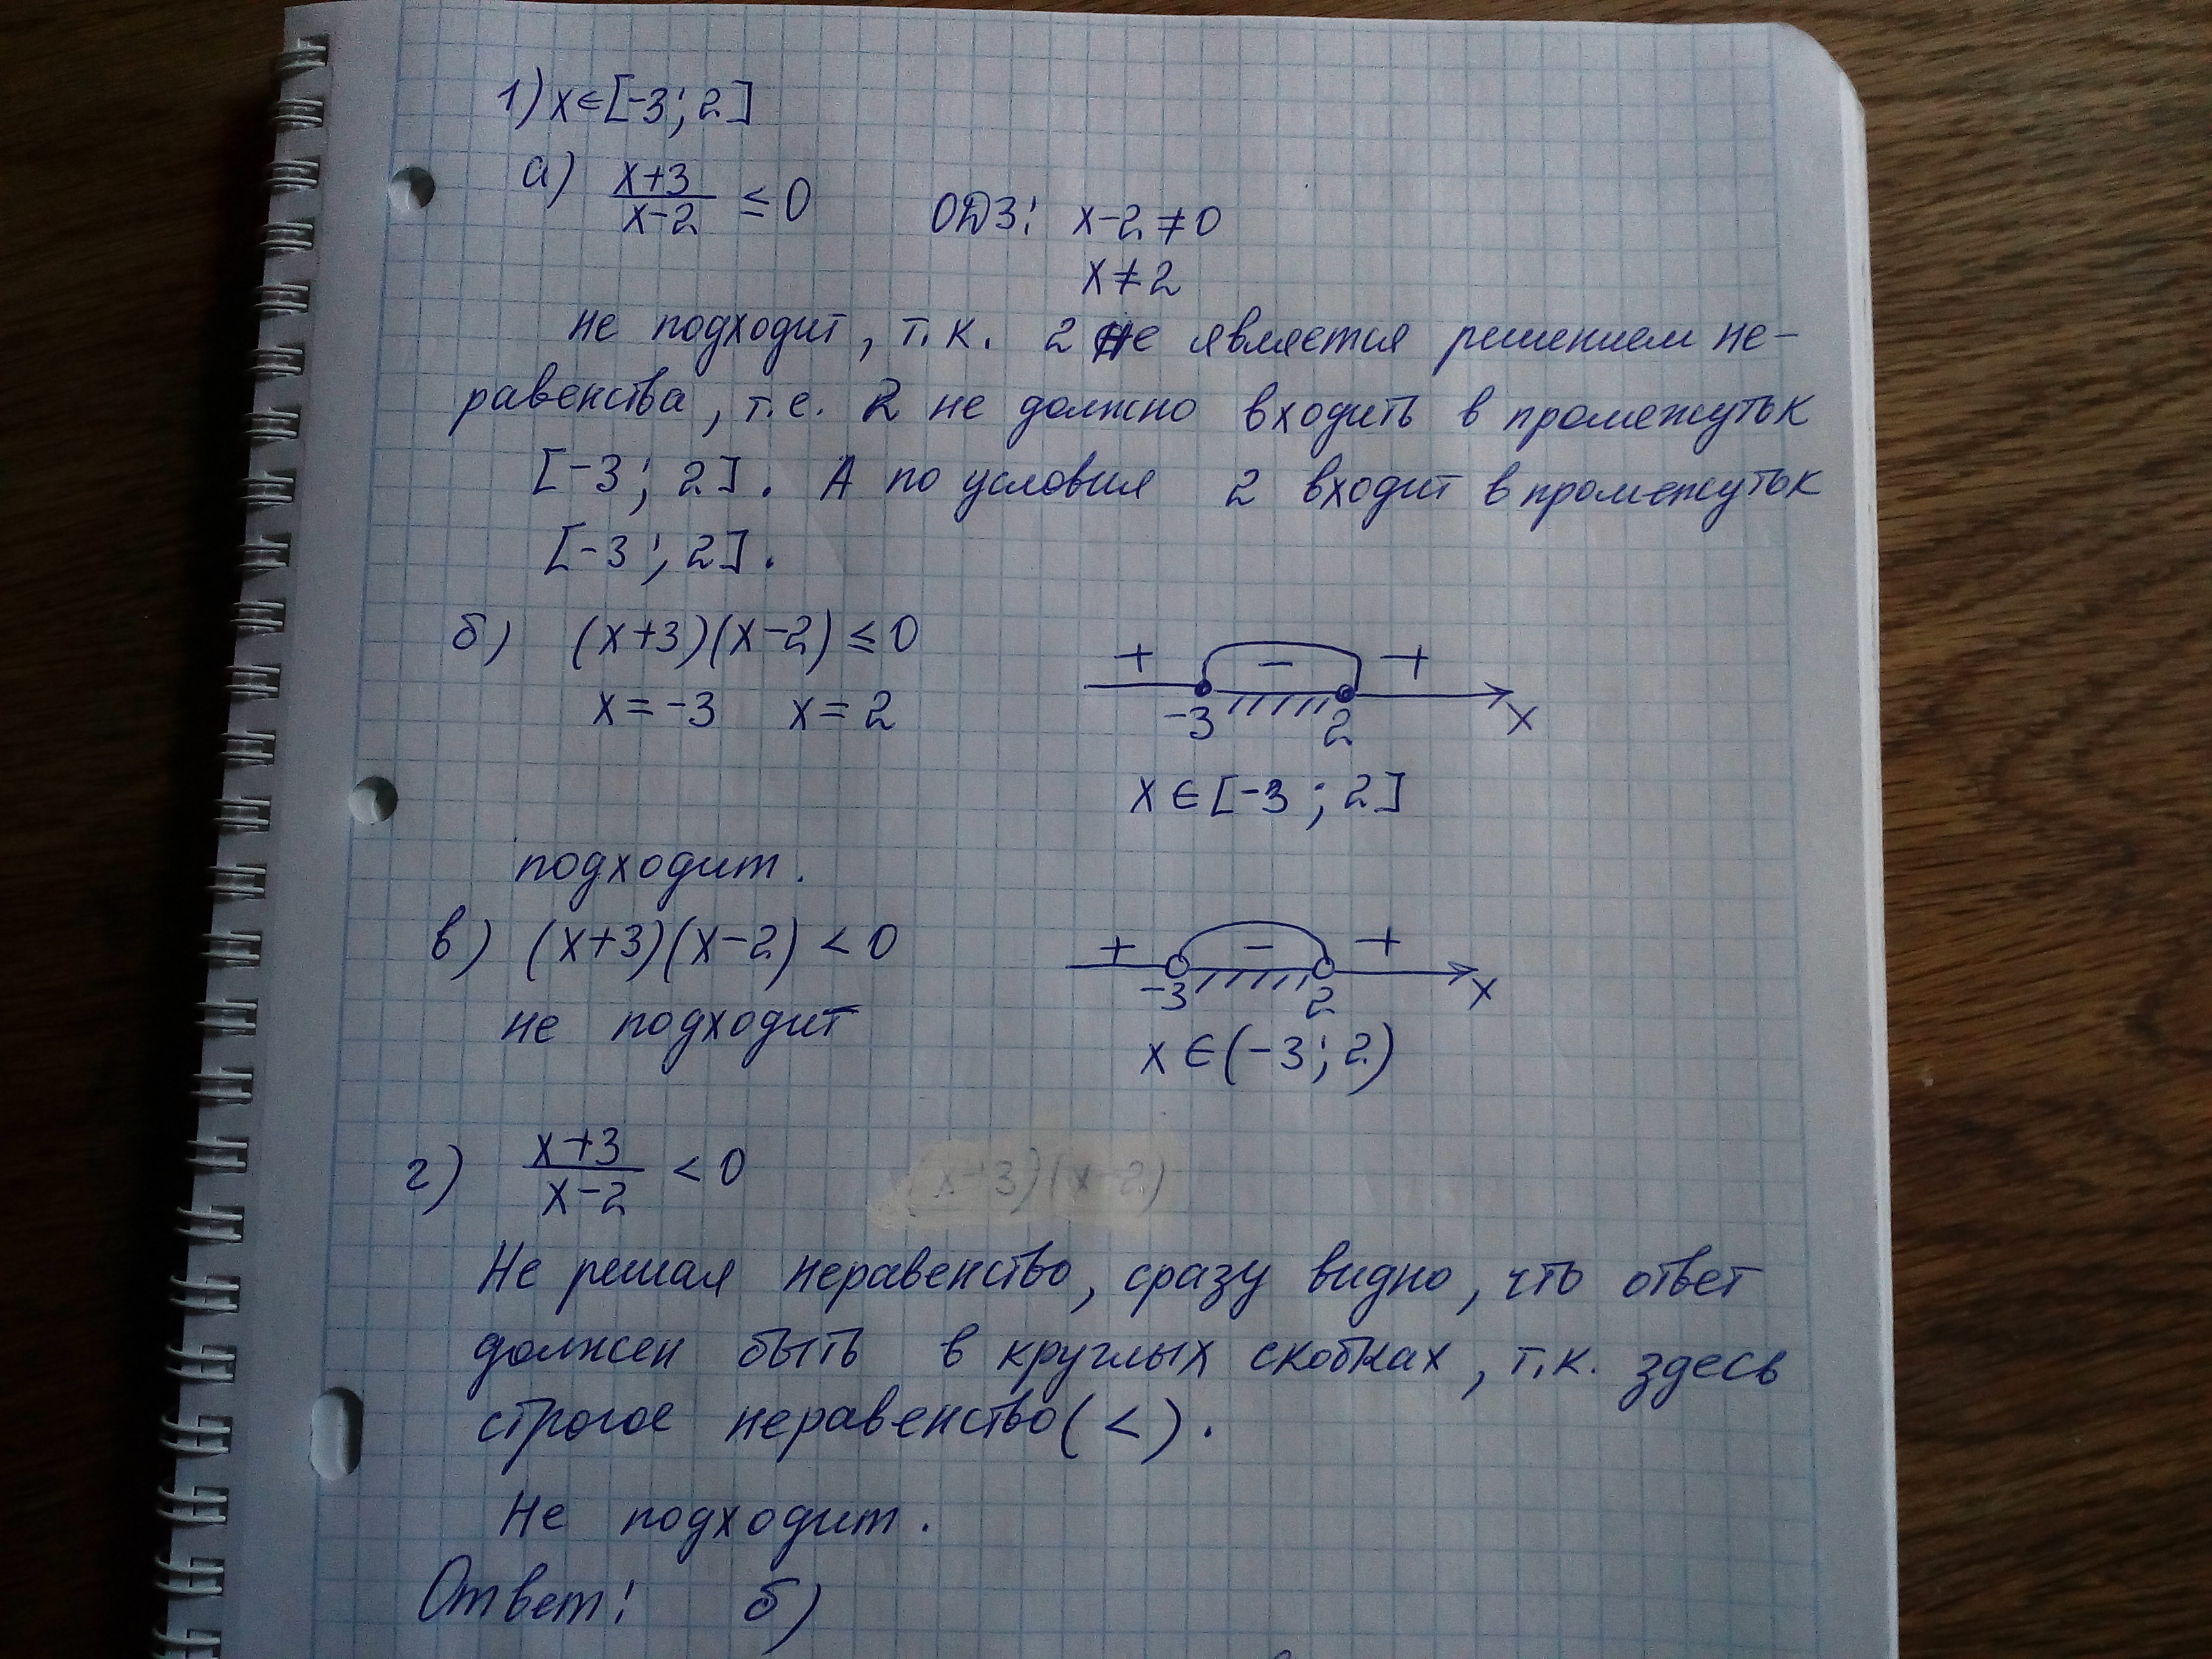 1) x∈[-3; 2]
а) (x+3)/(x-2) ≤ 0 ОДЗ: x-2 ≠ 0
x ≠ 2
не подходит, т.к. 2 не является решением не-
равенства, т.е. 2 не должно входить в промежуток
[-3; 2]. А по условия 2 входит в промежуток
[-3; 2].
б) (x+3)(x-2) ≤ 0 + - +
x = -3 x = 2 -3 2 x
x ∈ [-3; 2]
подходит.
в) (x+3)(x-2) < 0 + - +
-3 2 x
не подходит
x ∈ (-3; 2)
г) (x+3)/(x-2) < 0
Не решая неравенство, сразу видно, что ответ
должен быть в круглых скобках, т.к. здесь
строгое неравенство (<).
Не подходит.
Ответ: б)